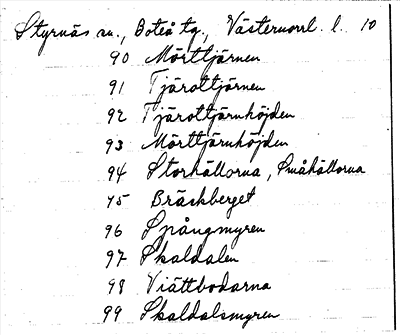 Styrnäs sn., Boteå tg., Västernorrl. l. 10
90 Mörttjärnen
91 Tjärottjärnen
92 Tjärottjärnhöjden
93 Mörttjärnhöjden
94 Storhällorna, Småhällorna
95 Bräckberget
96 Spångmyren
97 Skaldalen
98 Viättbodarna
99 Skaldalsmyren